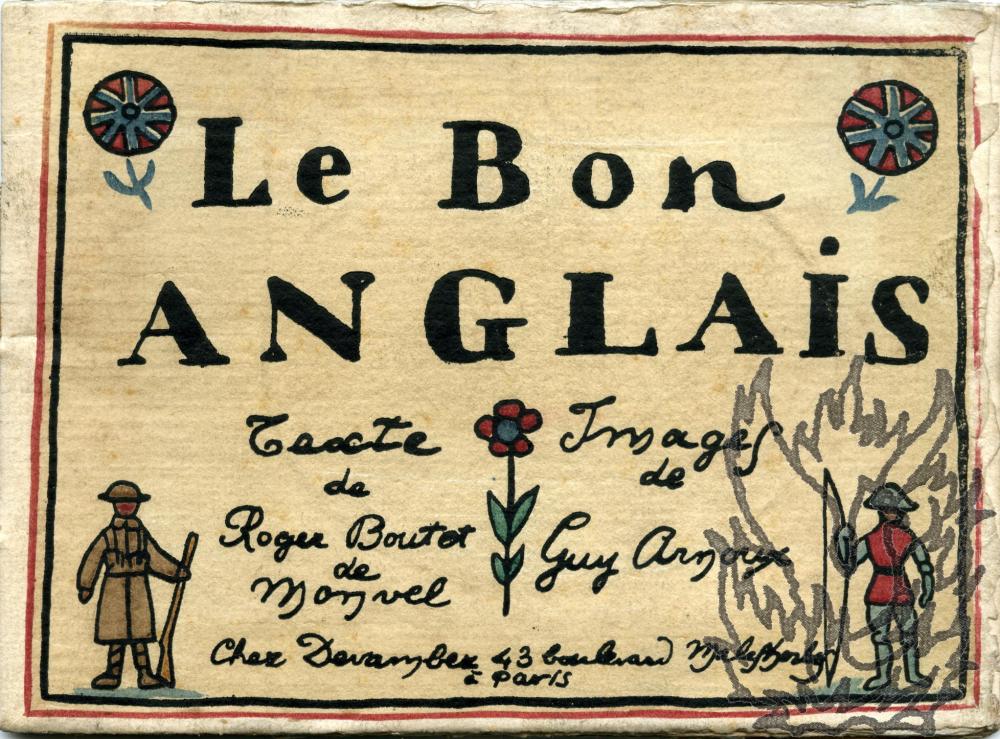 Le Bon
ANGLAiS
Texte
de
Roger Boutet
de
Monvel
Images
de
Guy Arnoux
Chez Devambez 43 boulevard Malesherbes
à Paris